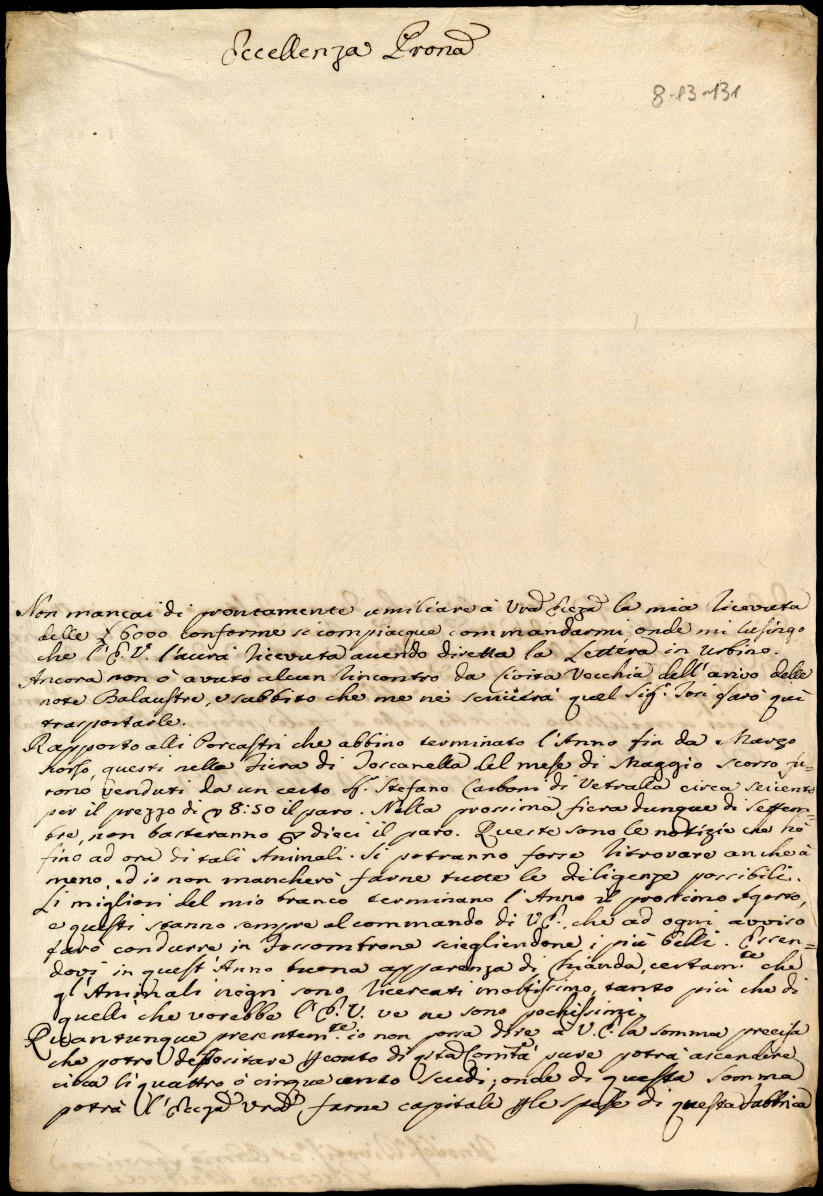 Eccellenza Prona
8-13-131
Non mancai di prontamente umiliare à Vra Eccza la mia ricevuta
delle 6000 conforme si compiacque commandarmi, onde mi lusingo
che l'E. V. l'aurà ricevuta avendo diretta la Lettera in Urbino.
Ancora non ò avuto alcun rincontro da Civita Vecchia dell'arivo delle
note Balaustre, e subbito che me ne scriverà quel Sigr. Tosi farò quì
trasportarle.
Rapporto alli Porcastri che abbino terminato l'Anno fin da Marzo
scorso, questi nella Fiera di Toscanella del mese di Maggio scorso fu-
rono venduti da un certo Sr. Stefano Carboni di Vetralla circa seicento
per il prezzo di 8:50 il paro. Nella prossima fiera dunque di Settem-
bre, non basteranno dieci il paro. Queste sono le notizie che hò
fino ad ora di tali Animali. Si potranno forse ritrovare anche à
meno, ed io non mancherò farne tutte le diligenze possibili.
Li migliori del mio branco terminano l'Anno il prossimo Agosto,
e questi stanno sempre al commando di V.E., che ad ogni avviso
farò condurre in Fossombrone sciegliendone i più belli. Essen-
dovi in quest'Anno buona apparenza di Ghianda, certamte che
gl'Animali negri sono ricercati moltissimo, tanto più che di
quelli che vorebbe l'E. V. ve ne sono pochissimi.
Quantunque presentemte io non possa dire à V.E. la somma precisa
che potrò depositare conto di qta Comtà pure potrà ascendere
circa li quattro ò cinque cento Scudi; onde di questa somma
potrà l'Eccza Vra farne capitale le spese di questa Fabbrica